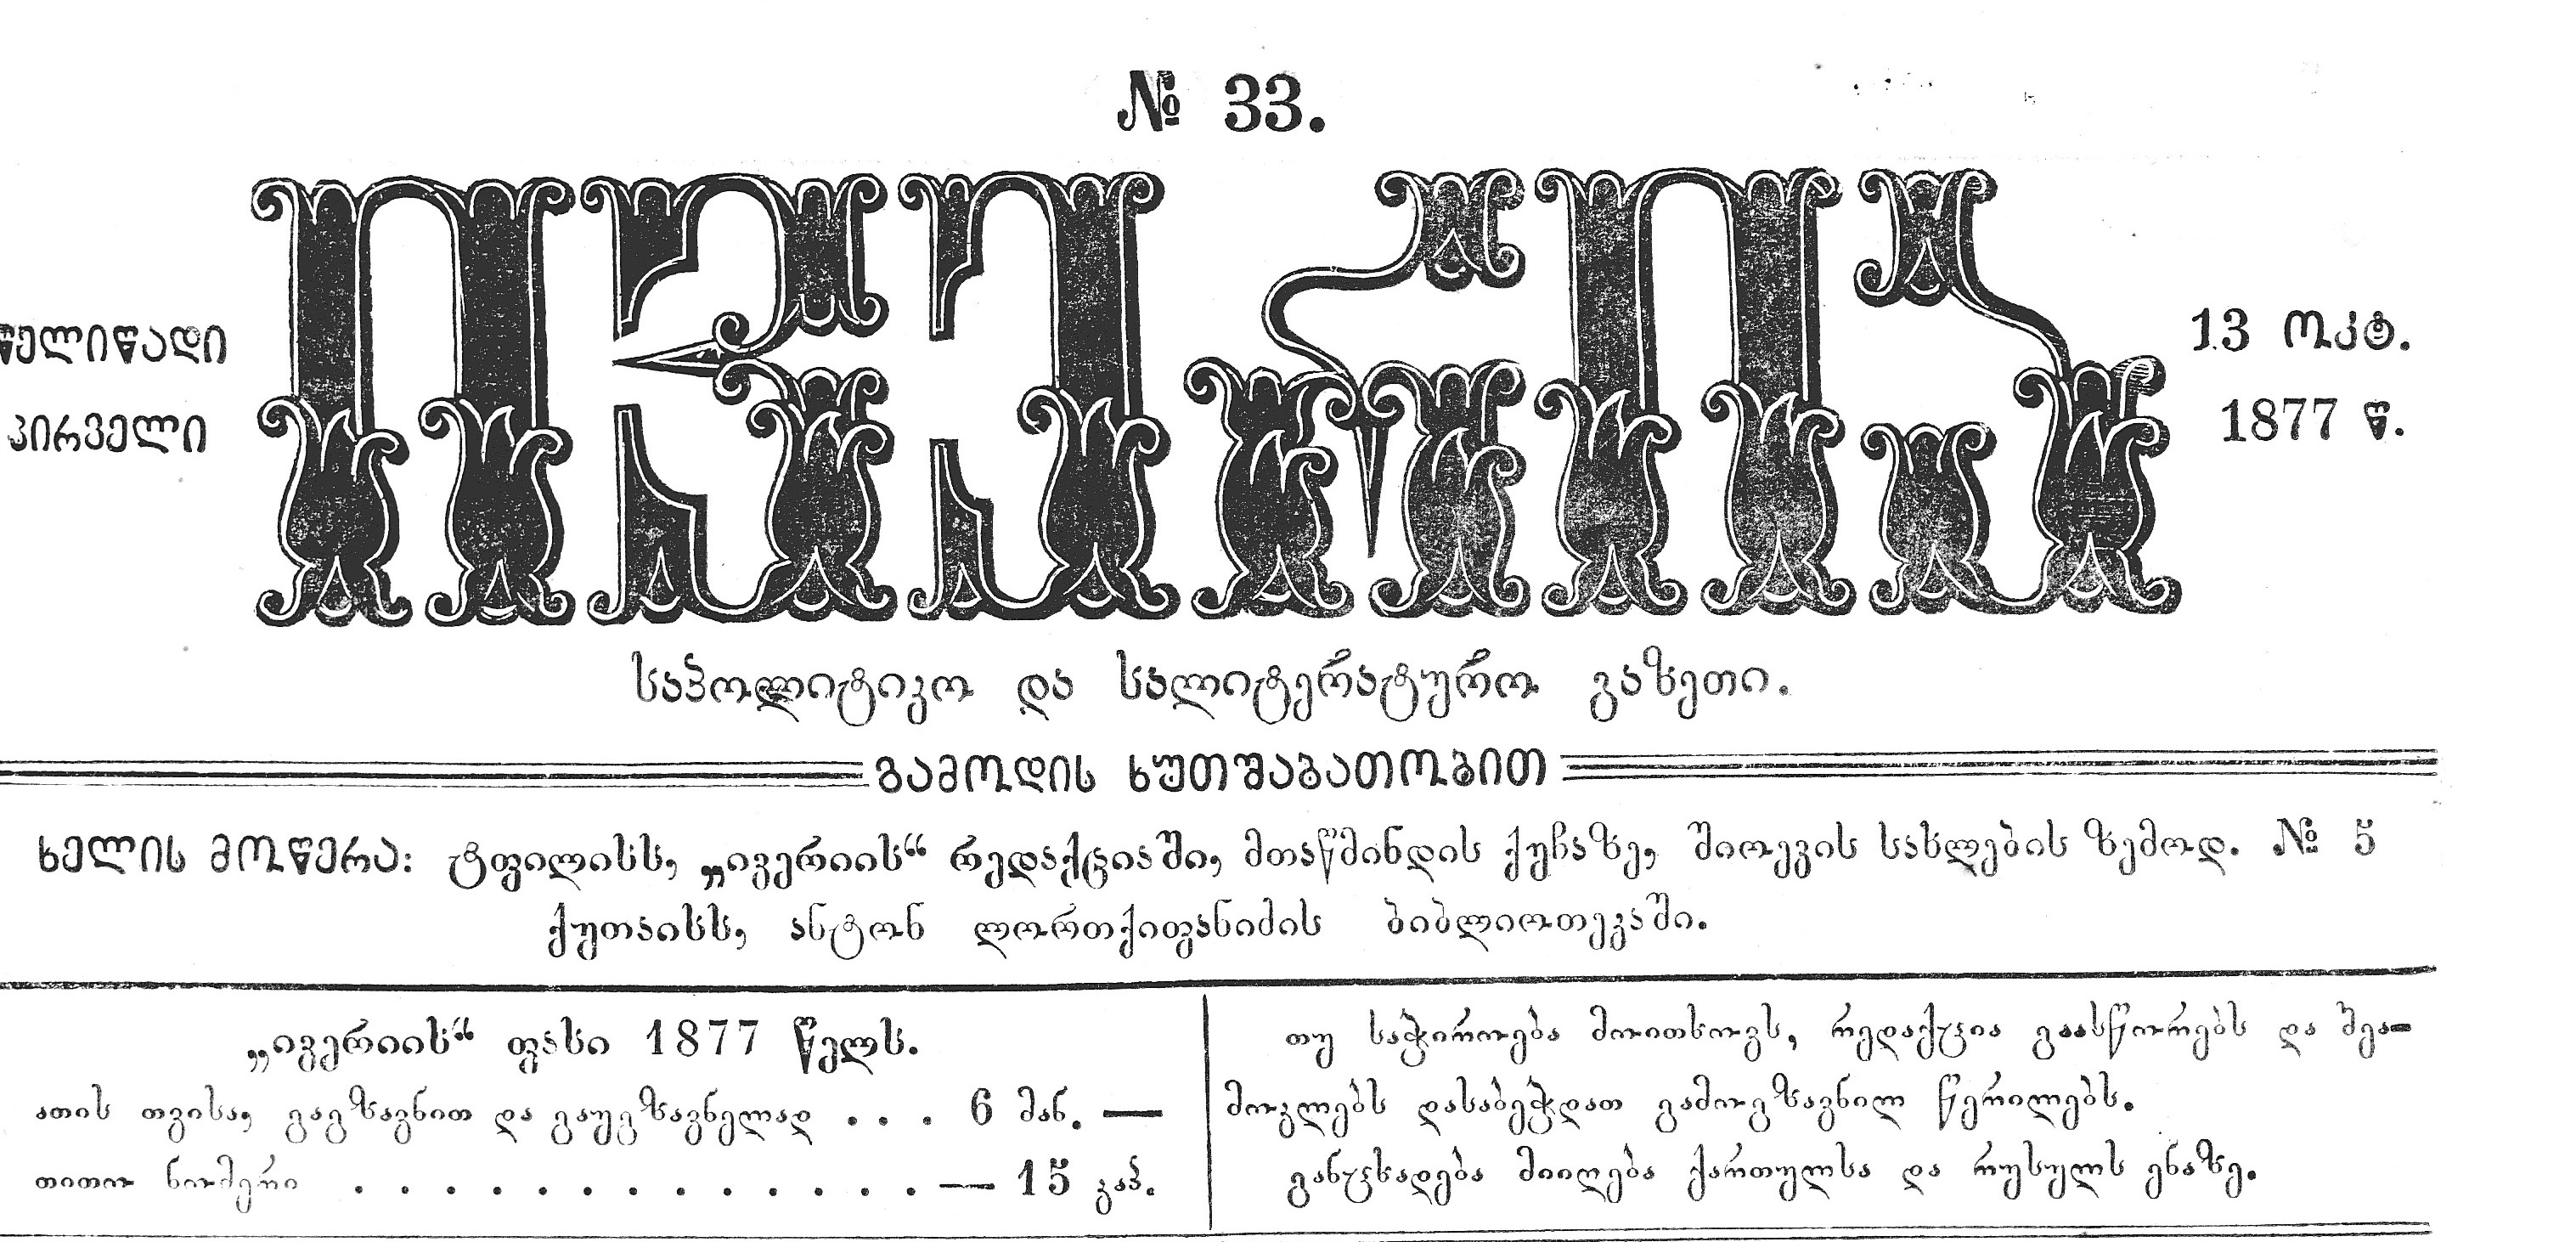 № 33.
ივერია
წელიწადი
პირველი
13 ოკტ.
1877 წ.
საპოლიტიკო და სალიტერატურო გაზეთი.
გამოდის ხუთშაბათობით
ხელის მოწერა: ტფილისს, „ივერიის“ რედაქციაში, მთაწმინდის ქუჩაზე, შიოევის სახლების ზემოდ. № 5
ქუთაისს, ანტონ ლორთქიფანიძის ბიბლიოთეკაში.
„ივერიის“ ფასი 1877 წელს.
ათის თვისა, გაგზავნით და გაუგზავნელად . . . 6 მან. —
თითო ნომერი . . . . . . . . . . . . . — 15 კაპ.
თუ საჭიროება მოითხოვს, რედაქცია გაასწორებს და შეა-
მოკლებს დასაბეჭდათ გამოგზავნილ წერილებს.
განცხადება მიიღება ქართულსა და რუსულს ენაზე.